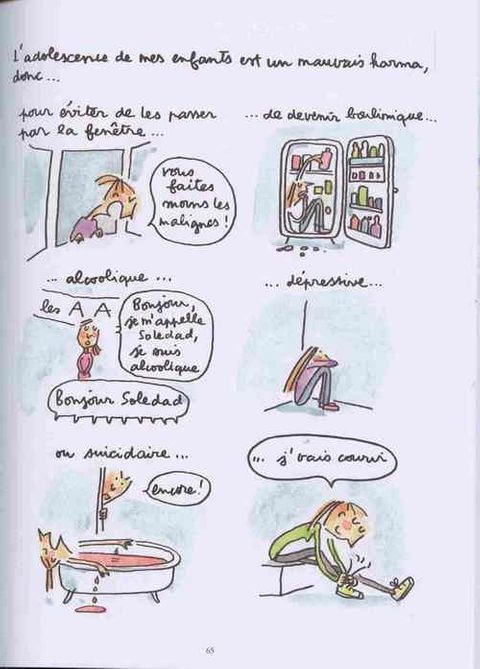 L'adolescence de mes enfants est un mauvais karma,
donc...
pour éviter de les passer
par la fenêtre...
vous
faites
moins les
malignes!
... de devenir boulimique...
... alcoolique...
les A A
Bonjour,
je m'appelle
Soledad,
je suis
alcoolique
Bonjour Soledad
... dépressive...
ou suicidaire...
encore!
... j'vais courir
65